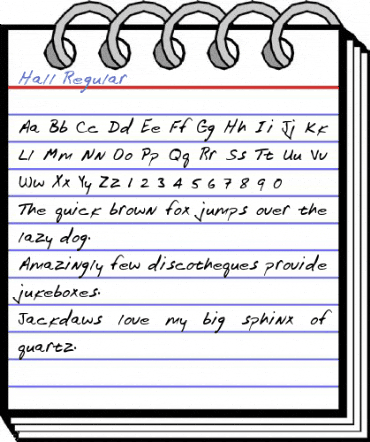 Hall Regular
Aa Bb Cc Dd Ee Ff Gg Hh Ii Jj Kk
Ll Mm Nn Oo Pp Qq Rr Ss Tt Uu Vv
Ww Xx Yy Zz 1 2 3 4 5 6 7 8 9 0
The quick brown fox jumps over the
lazy dog.
Amazingly few discotheques provide
jukeboxes.
Jackdaws love my big sphinx of
quartz.